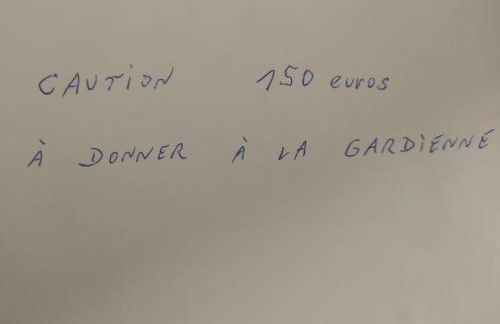 CAUTION 150 euros
À DONNER À LA GARDIENNE